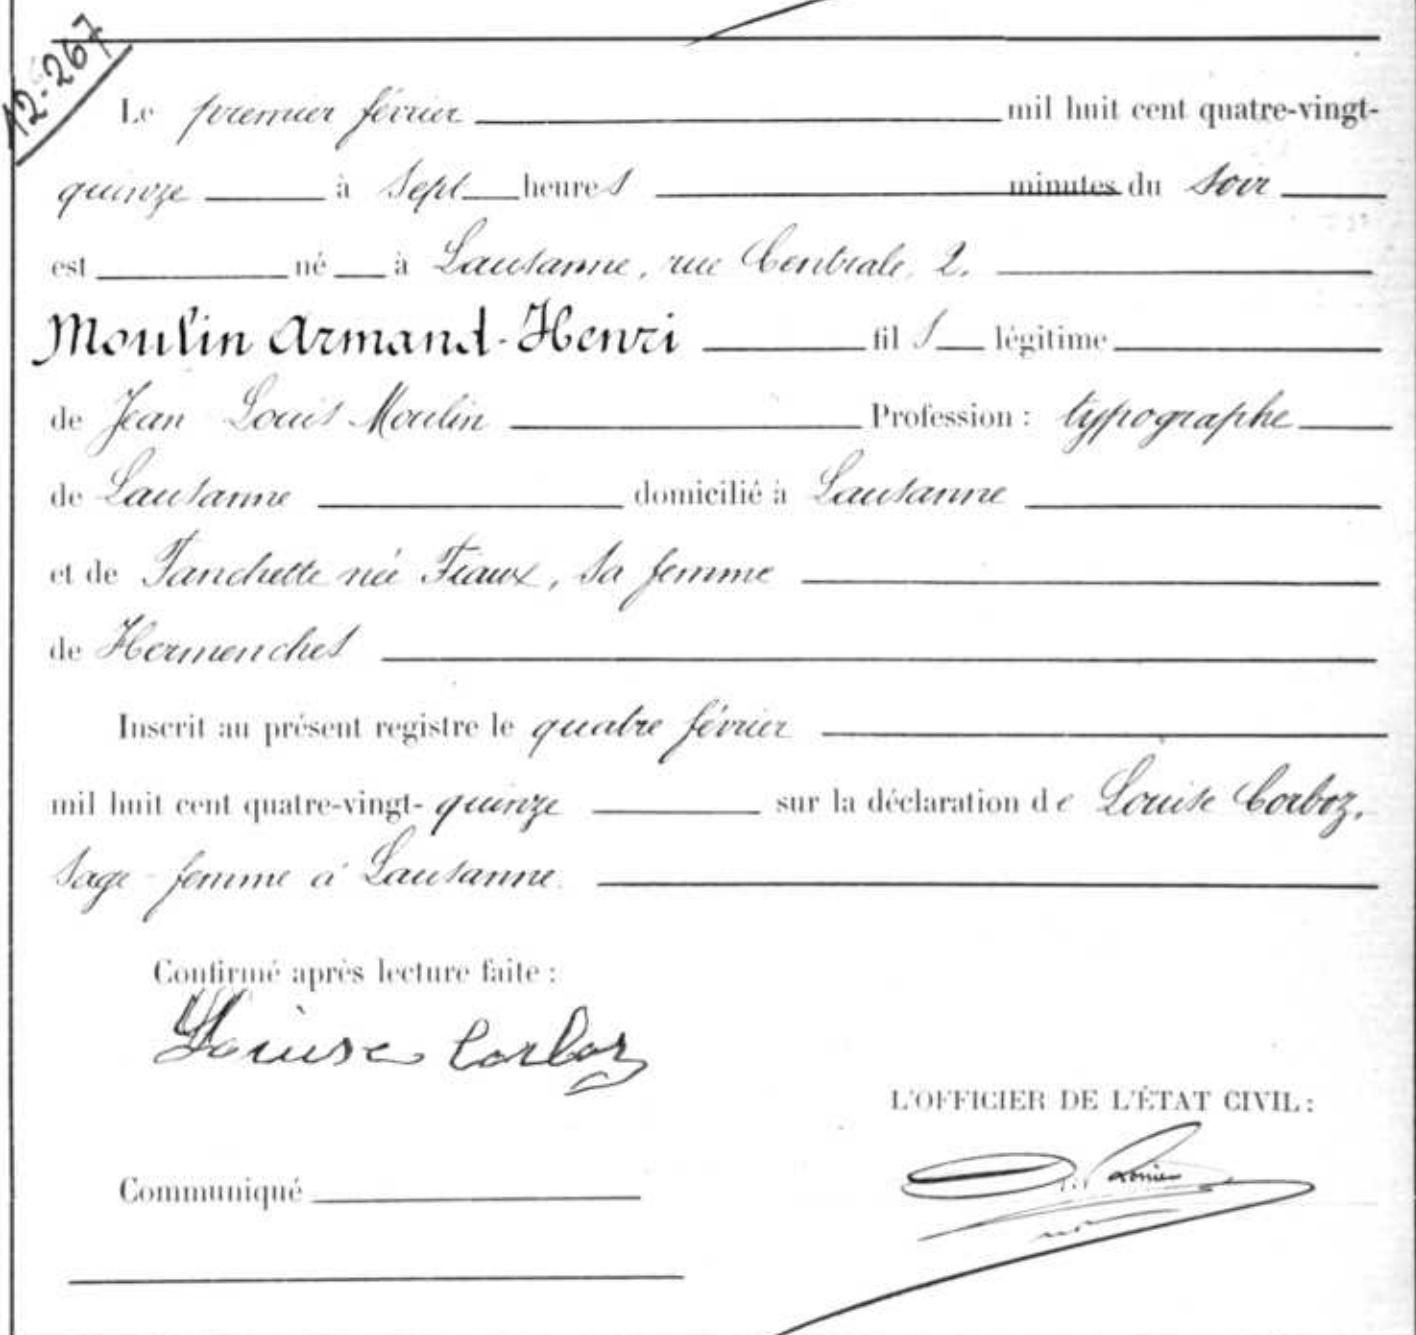 12-267
Le premier février mil huit cent quatre-vingt-
quinze à sept heures minutes du soir
est né à Lausanne, rue Centrale, 2.
Moulin Armand-Henri fils légitime
de Jean Louis Moulin Profession : typographe
de Lausanne domicilié à Lausanne
et de Fanchette née Fiaux, sa femme
de Hermenches
Inscrit au présent registre le quatre février
mil huit cent quatre-vingt-quinze sur la déclaration de Louise Corboz,
sage-femme à Lausanne.
Confirmé après lecture faite :
Louise Corboz
L'OFFICIER DE L'ÉTAT CIVIL :
Communiqué